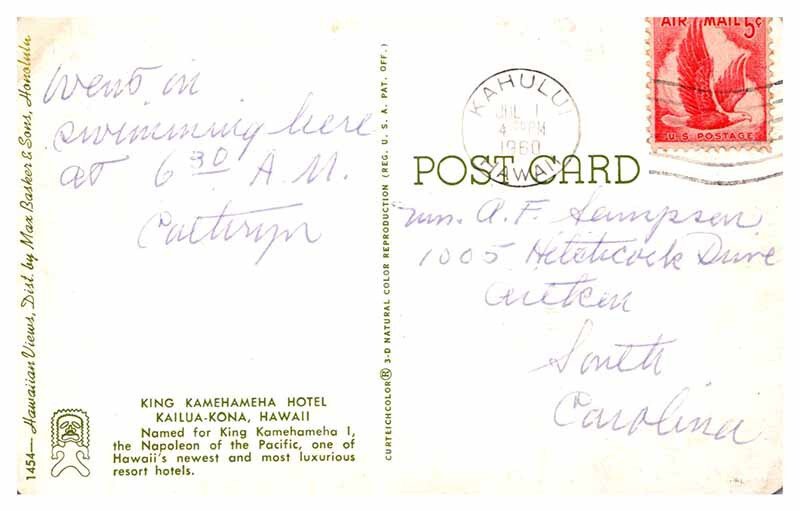 Went in
swimming here
at 6 30 A.M.
Cathryn
1454— Hawaiian Views, Dist. by Max Basker & Sons, Honolulu
KING KAMEHAMEHA HOTEL
KAILUA-KONA, HAWAII
Named for King Kamehameha I,
the Napoleon of the Pacific, one of
Hawaii's newest and most luxurious
resort hotels.
CURTEICHCOLOR® 3-D NATURAL COLOR REPRODUCTION (REG. U. S. A. PAT. OFF.)
AIR MAIL 5¢
U.S. POSTAGE
KAHULUI
JUL 1
PM
1960
HAWAII
POST CARD
Mrs. A. F. Sampson
1005 Hitchcock Drive
Aiken
South
Carolina